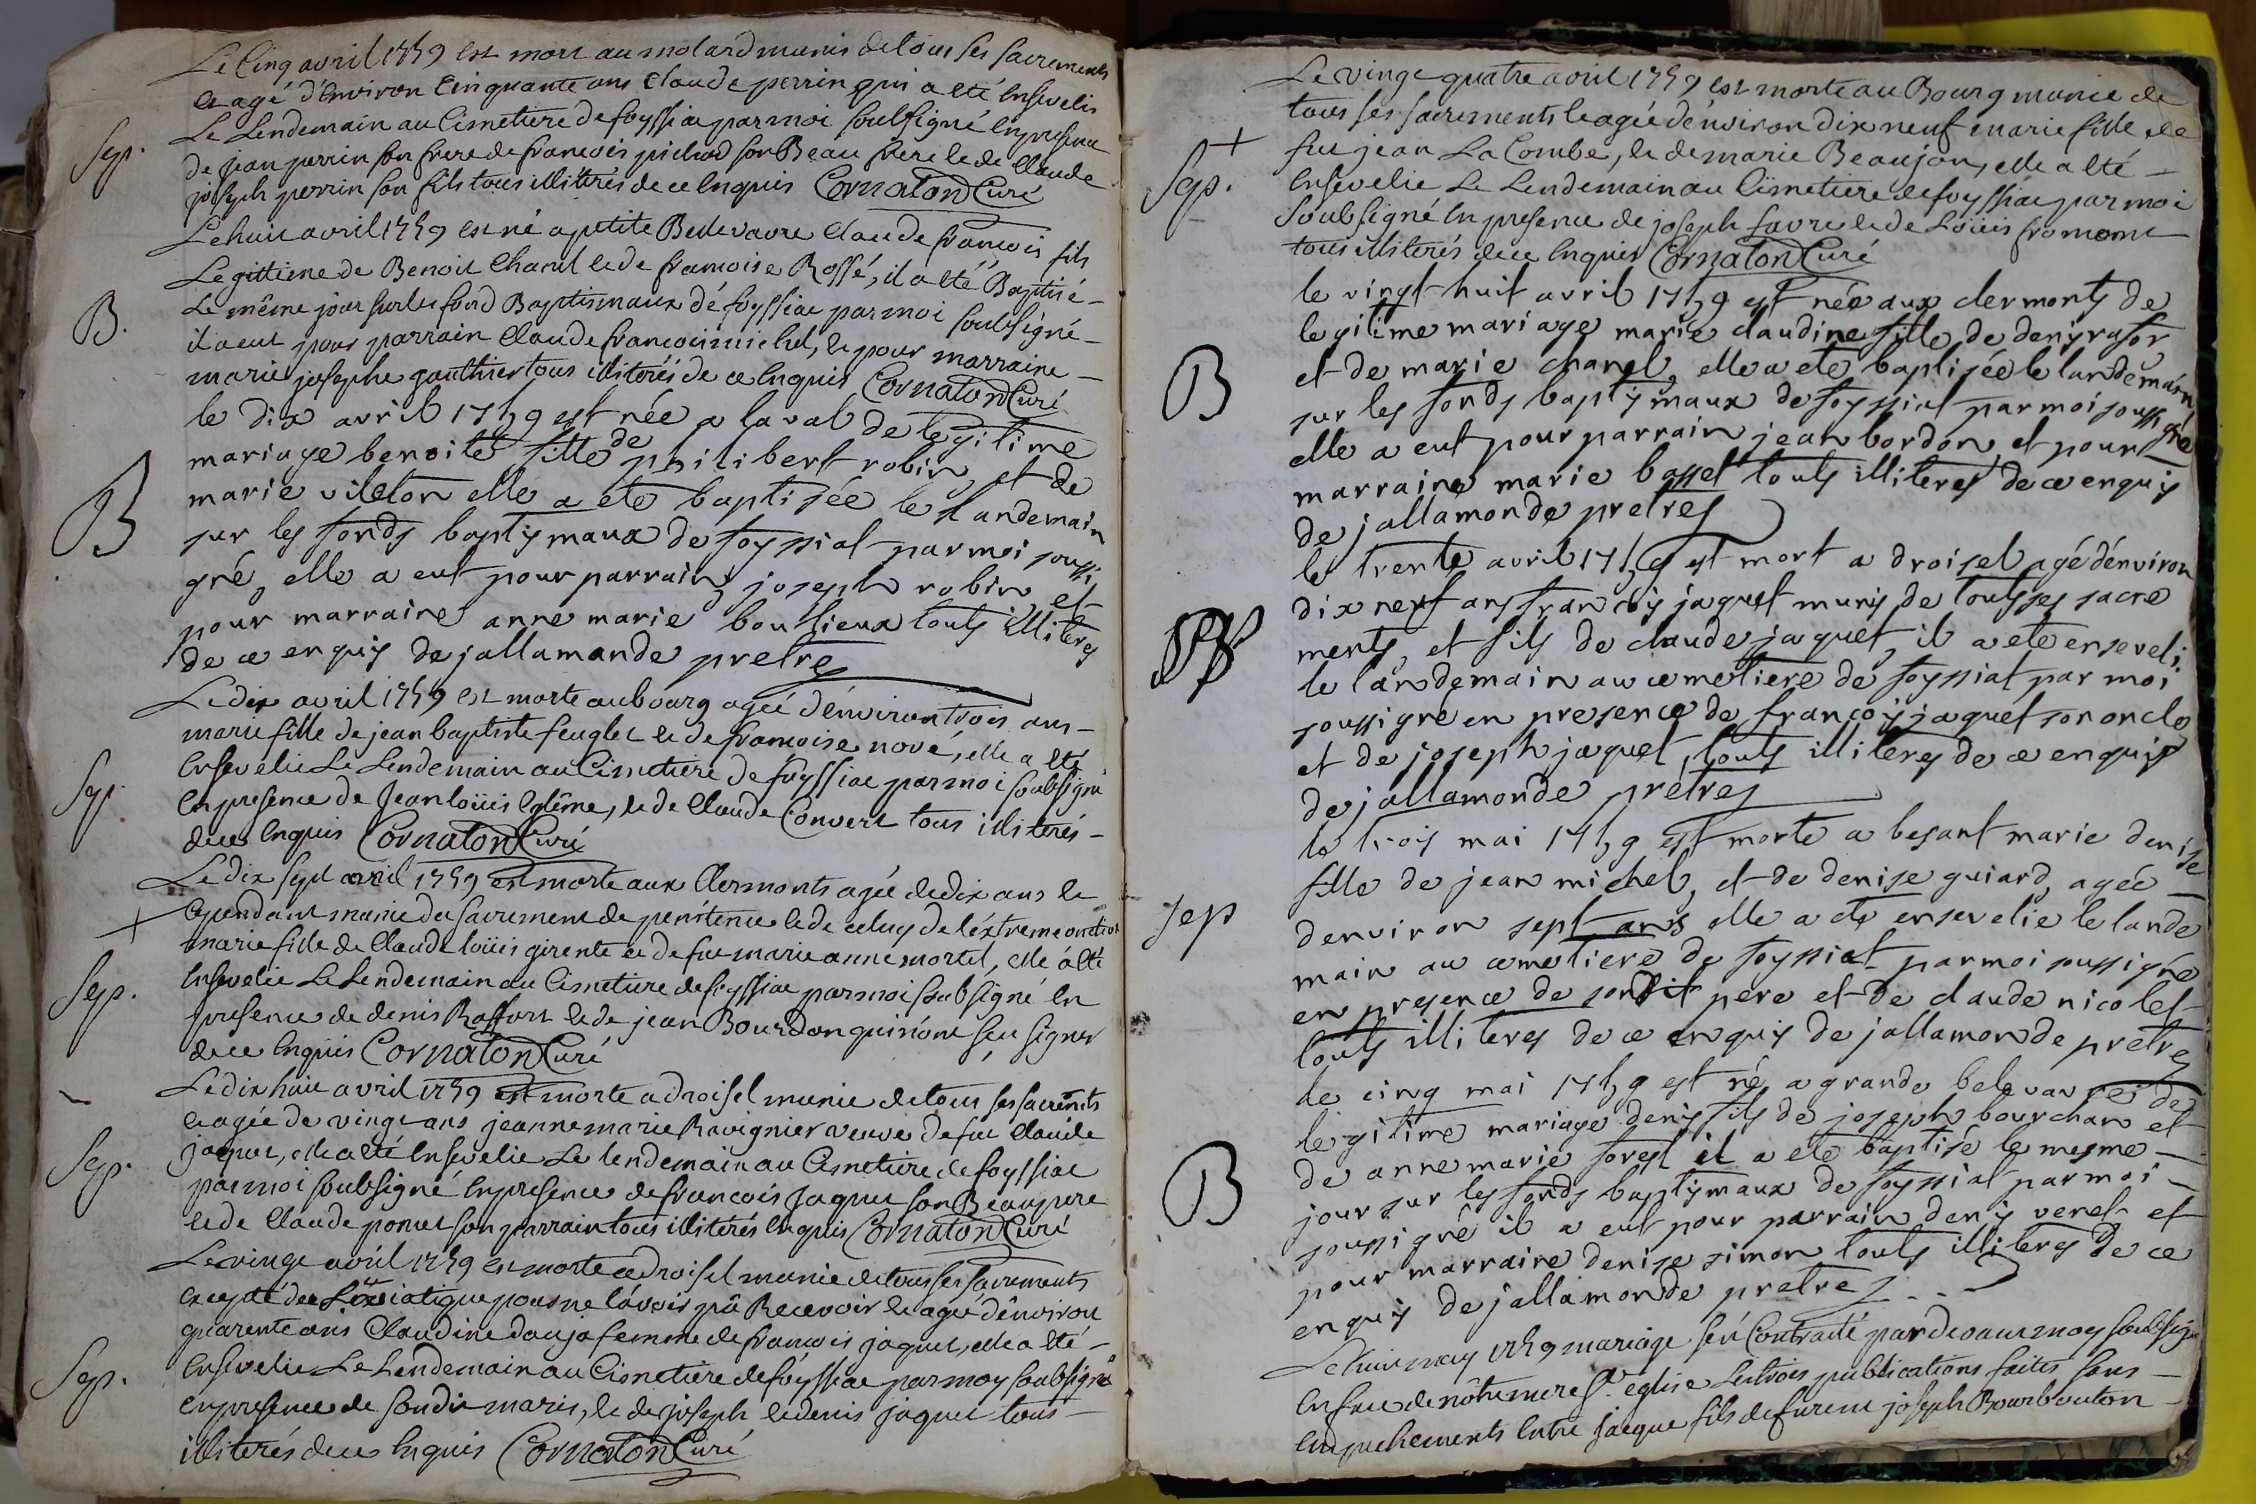 Le Cinq avril 1759 est mort au molard munis de tous ses sacrements
et agé d'environ Cinquante ans Claude perrin qui a eté Ensevelis
Sep. Le Lendemain au Cimetiere de foyssiat par moi soubsigné En presence
de jean perrin son frere de francois pichod son Beau frere et de Claude
joseph perrin son fils tous illiterés de ce Enquis Cornaton Curé
Le huit avril 1759 est né a petite Belevavre Claude francois fils
Legittime de Benoit Chanel et de francoise Rossé, il a eté Baptisé -
B. Le même jour sur les fond Baptismaux de foyssiat par moi soubsigné -
il a eut pour parrain Claude francois michel, et pour marraine -
marie josephe gauthier tous illiterés de ce Enquis Cornaton Curé
le dix avril 1759 est née a laval de legitime
mariage benoite fille de philibert robin et de
B marie vileton elle a ete baptisée le landemain
sur les fonds baptismaux de foyssiat par moi soussi
gné, elle a eut pour parrain joseph robin et
pour marraine anne marie boulieux touts illiteres
de ce enquis de jallamonde pretres
Le dix avril 1759 est morte au bourg agée d'environ trois ans -
marie fille de jean baptiste feuglet et de francoise nové, elle a eté
Sep. Ensevelie Le Lendemain au Cimetiere de foyssiat par moi soubsigné
En presence de Jean loüis Eglême, et de Claude Convert tous illiterés -
de ce Enquis Cornaton Curé
Le dix sept avril 1759 est morte aux Clermonts agée de dix ans et
+ Cependant munie du sacrement de penitence et de celuy de l'extreme onction
marie fille de Claude loüis girente et de fue marie anne mortel, elle a eté
Sep. Ensevelie Le Lendemain au Cimetiere de foyssiat par moi soubsigné En
presence de denis Raffort et de jean Bourdon qui n'ont sçu signer
de ce Enquis Cornaton Curé
Le dix huit avril 1759 est morte a droisel munie de tous ses sacrements
et agée de vingt ans jeanne marie Ravignier veuve de fut Claude
Sep. jaquet, elle a eté Ensevelie Le lendemain au Cimetiere de foyssiat
par moi soubsigné En presence de francois Jaquet son Beaupere
et de Claude ponet son parrain tous illiterés Enquis Cornaton Curé
Le vingt avril 1759 est morte a droisel munie de tous ses sacrements
excepté du s. viatique pour ne l'avoir pû Recevoir et agée d'environ
quarente ans Claudine Dauja femme de francois jaquet, elle a eté -
Sep. Ensevelie Le Lendemain au Cimetiere de foyssiat par moy soubsigné
En presence de son dit maris, et de joseph et denis jaquet tous -
illiterés de ce Enquis Cornaton Curé
Le vingt quatre avril 1759 est morte au Bourg munie de
tous ses sacrements et agée d'environ dix neuf marie fille de
+ fut jean La Combe, et de marie Beaujon, elle a eté -
Sep. Ensevelie Le Lendemain au Cimetiere de foyssiat par moi
Soubsigné En presence de joseph favre et de Loüis fromont
tous illiterés de ce Enquis Cornaton Curé
le vingt huit avril 1759 est née aux clermonts de
legitime mariage marie claudine fille de denis rafor
B et de marie chanel, elle a eté baptisée le landemain
sur les fonds baptismaux de foyssiat par moi soussigné
elle a eut pour parrain jean bordon, et pour
marraine marie bosset touts illiteres de ce enquis
de jallamonde pretres
le trente avril 1759 est mort a droisel agé d'environ
dix neuf ans francois jaquet munis de touts ses sacre
ments, et fils de claude jaquet, il a eté enseveli
le landemain au cemetiere de foyssiat par moi
soussigné en presence de francois jaquet son oncle
et de joseph jaquet, touts illiteres de ce enquis
de jallamonde prêtres
le trois mai 1759 est morte a besant marie denise
fille de jean michel, et de denise guiard, agée -
sep denviron sept ans elle a eté ensevelie le lande
main au cemetiere de foyssiat par moi soussigné
en presence de son dit pere et de claude nicolet -
touts illiteres de ce enquis de jallamonde pretres
le cinq mai 1759 est né a grande belevavre de
legitime mariage denis fils de joseph bourchan et
B de anne marie forest il a eté baptisé le mesme -
jour sur les fonds baptismaux de foyssiat par moi -
soussigné il a eut pour parrain denis veret et
pour marraine denise simon touts illiteres de ce
enquis de jallamonde pretres...
Le huit may 1759 mariage fut Contracté pardevant moy soubsigné
En face de nôtre mere Ste eglise Les trois publications faites sans -
Empechements Entre jacque fils de furent joseph Bourbouton -